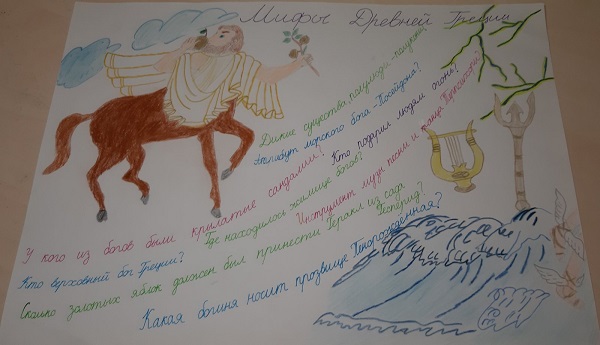 Мифы Древней Греции
Дикие существа, полулюди-полукони?
Атрибут морского бога - Посейдона?
Кто подарил людям огонь?
Инструмент музы песни и танца Терпсихоры?
У кого из богов были крылатые сандалии?
Где находилось жилище богов?
Кто верховный бог Греции?
Сколько золотых яблок должен был принести Геракл из сада Гесперид?
Какая богиня носит прозвище Пенорождённая?